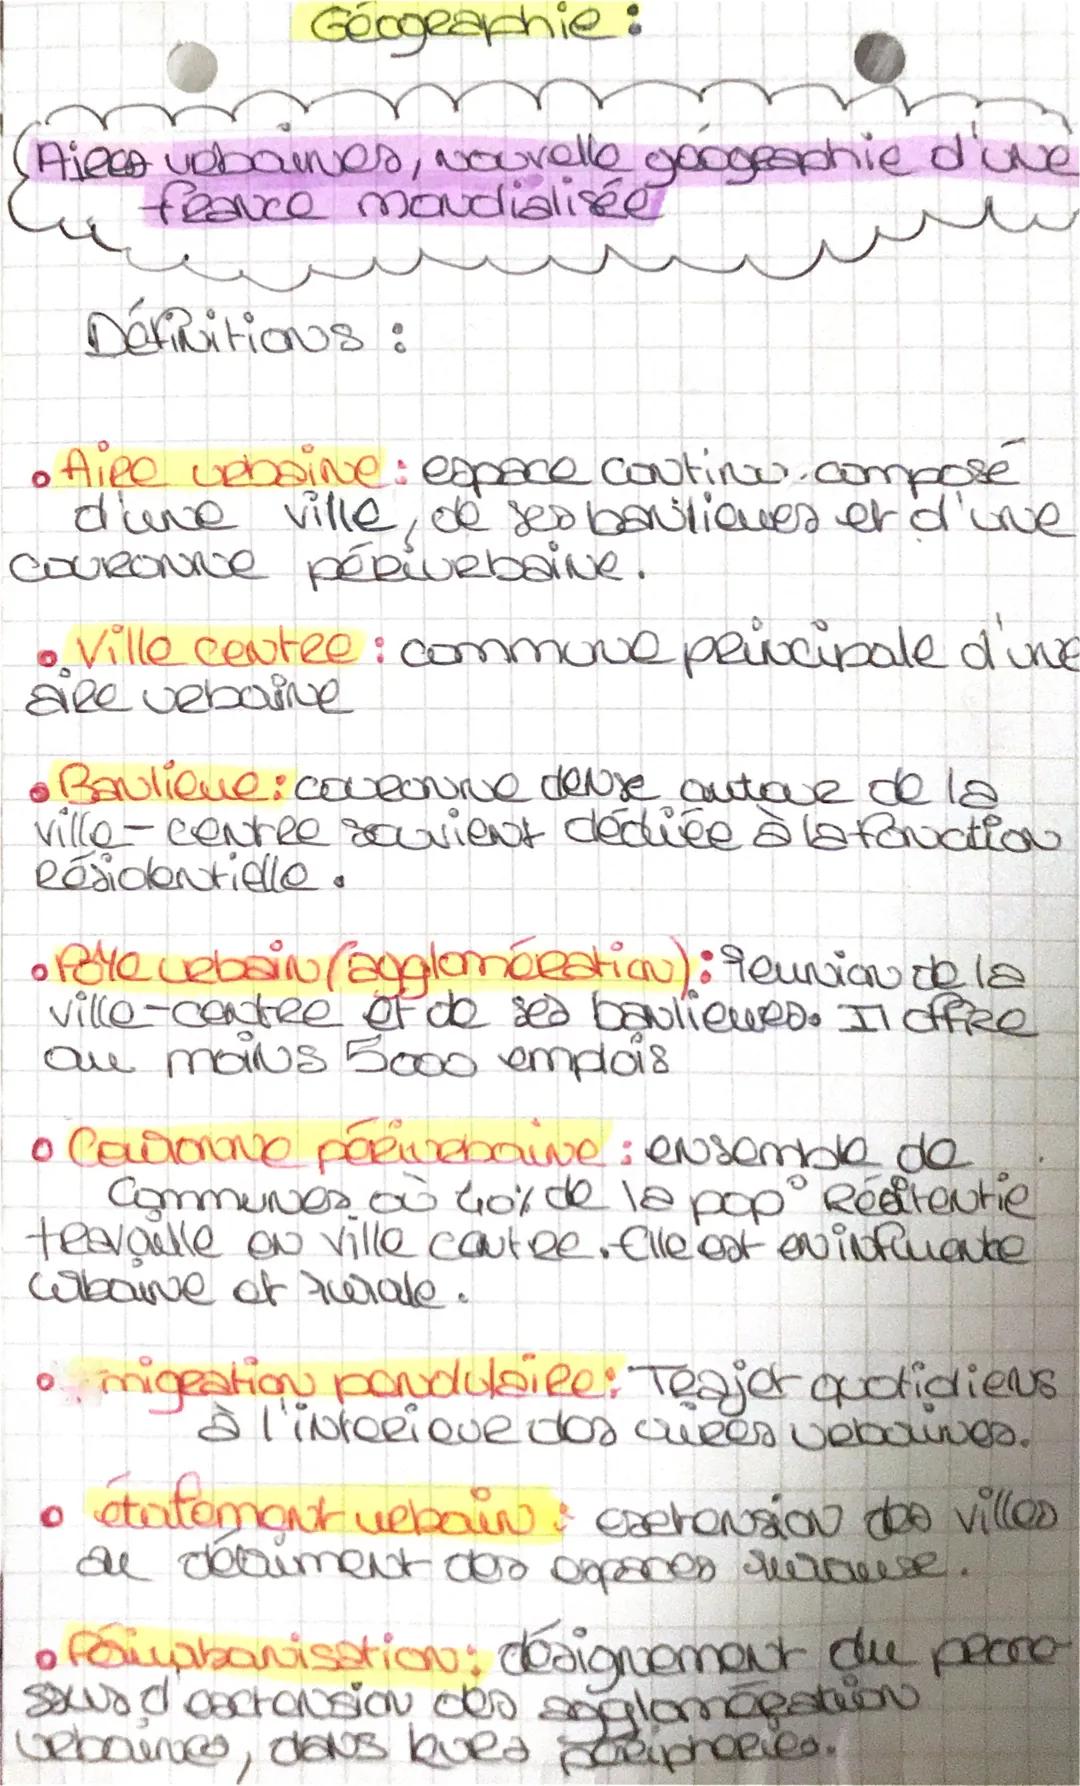 Géographie :
Aires urbaines, nouvelle géographie d'une
france mondialisée
Définitions :
• Aire urbaine : espace continu composé
d'une ville, de ses banlieues et d'une
couronne périurbaine.
• Ville centre : commune principale d'une
aire urbaine
• Banlieue : couronne dense autour de la
ville-centre souvient dédiée à la fonction
résidentielle.
• Pôle urbain (agglomération) : réunion de la
ville-centre et de ses banlieues. Il offre
au moins 5000 emplois
• Couronne périurbaine : ensemble de
communes où 40% de la pop° 
travaille en ville centre. Elle est en influente
urbaine et rurale.
• migration pendulaire : Trajet quotidiens
à l'interieur des aires urbaines.
• étalement urbain : extension des villes
au détriment des espaces ruraux.
• Périurbanisation : désignement du proce-
ssus d'extension des agglomération
urbaines, dans leurs périphéries.